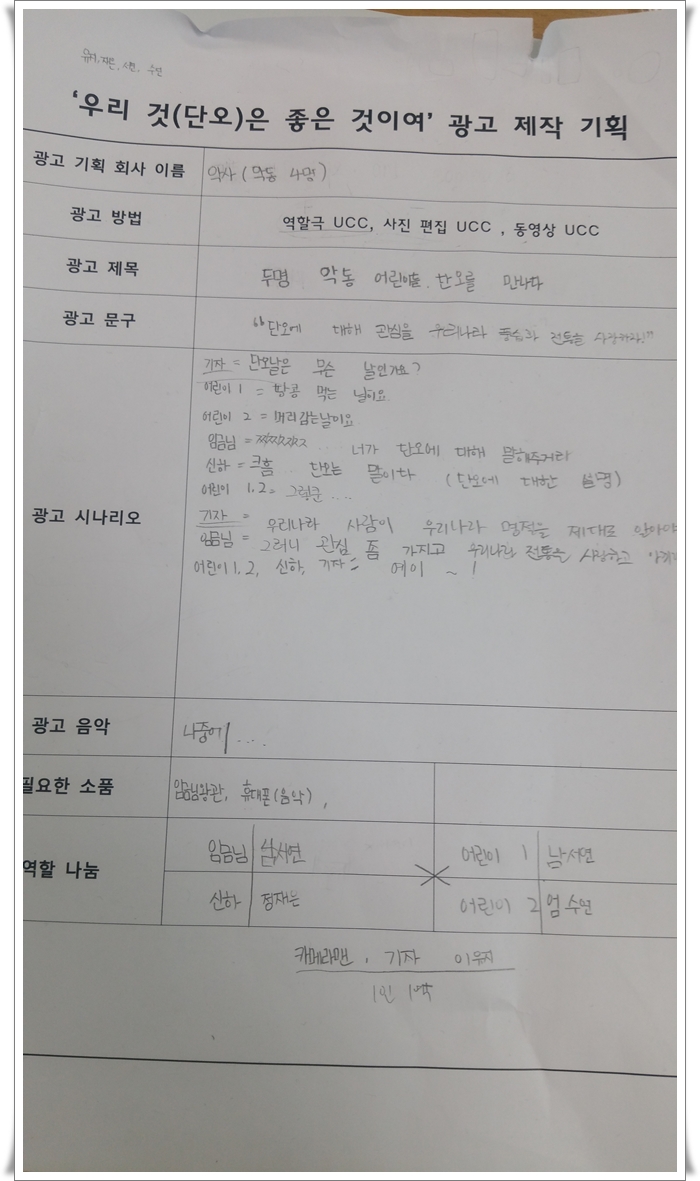 유지, 재은, 서연, 수연
'우리 것(단오)은 좋은 것이여' 광고 제작 기획
광고 기획 회사 이름 악사 (악동 4명)
광고 방법 역할극 UCC, 사진 편집 UCC , 동영상 UCC
광고 제목 두명 악동 어린이들, 단오를 만나다
광고 문구 "단오에 대해 관심을 우리나라 풍습과 전통을 사랑하자!"
광고 시나리오
기자 = 단오날은 무슨 날인가요?
어린이 1 = 땅콩 먹는 날이요.
어린이 2 = 머리감는날이요.
임금님 = 쯔쯔쯔쯔쯔... 너가 단오에 대해 말해주거라
신하 = 크흠.. 단오는 말이다 (단오에 대한 설명)
어린이 1,2 = 그렇군....
기자 = 우리나라 사람이 우리나라 명절을 제대로 알아야
임금님 = 그러니 관심 좀 가지고 우리나라 전통을 사랑하고
어린이1,2, 신하, 기자 = 예이 ~ !
광고 음악 나중에....
필요한 소품 임금님왕관, 휴대폰(음악),
역할 나눔
임금님 어린이 1 남서연
신하 정재은 어린이 2 엄수연
카메라맨, 기자 이유지
1인 1역